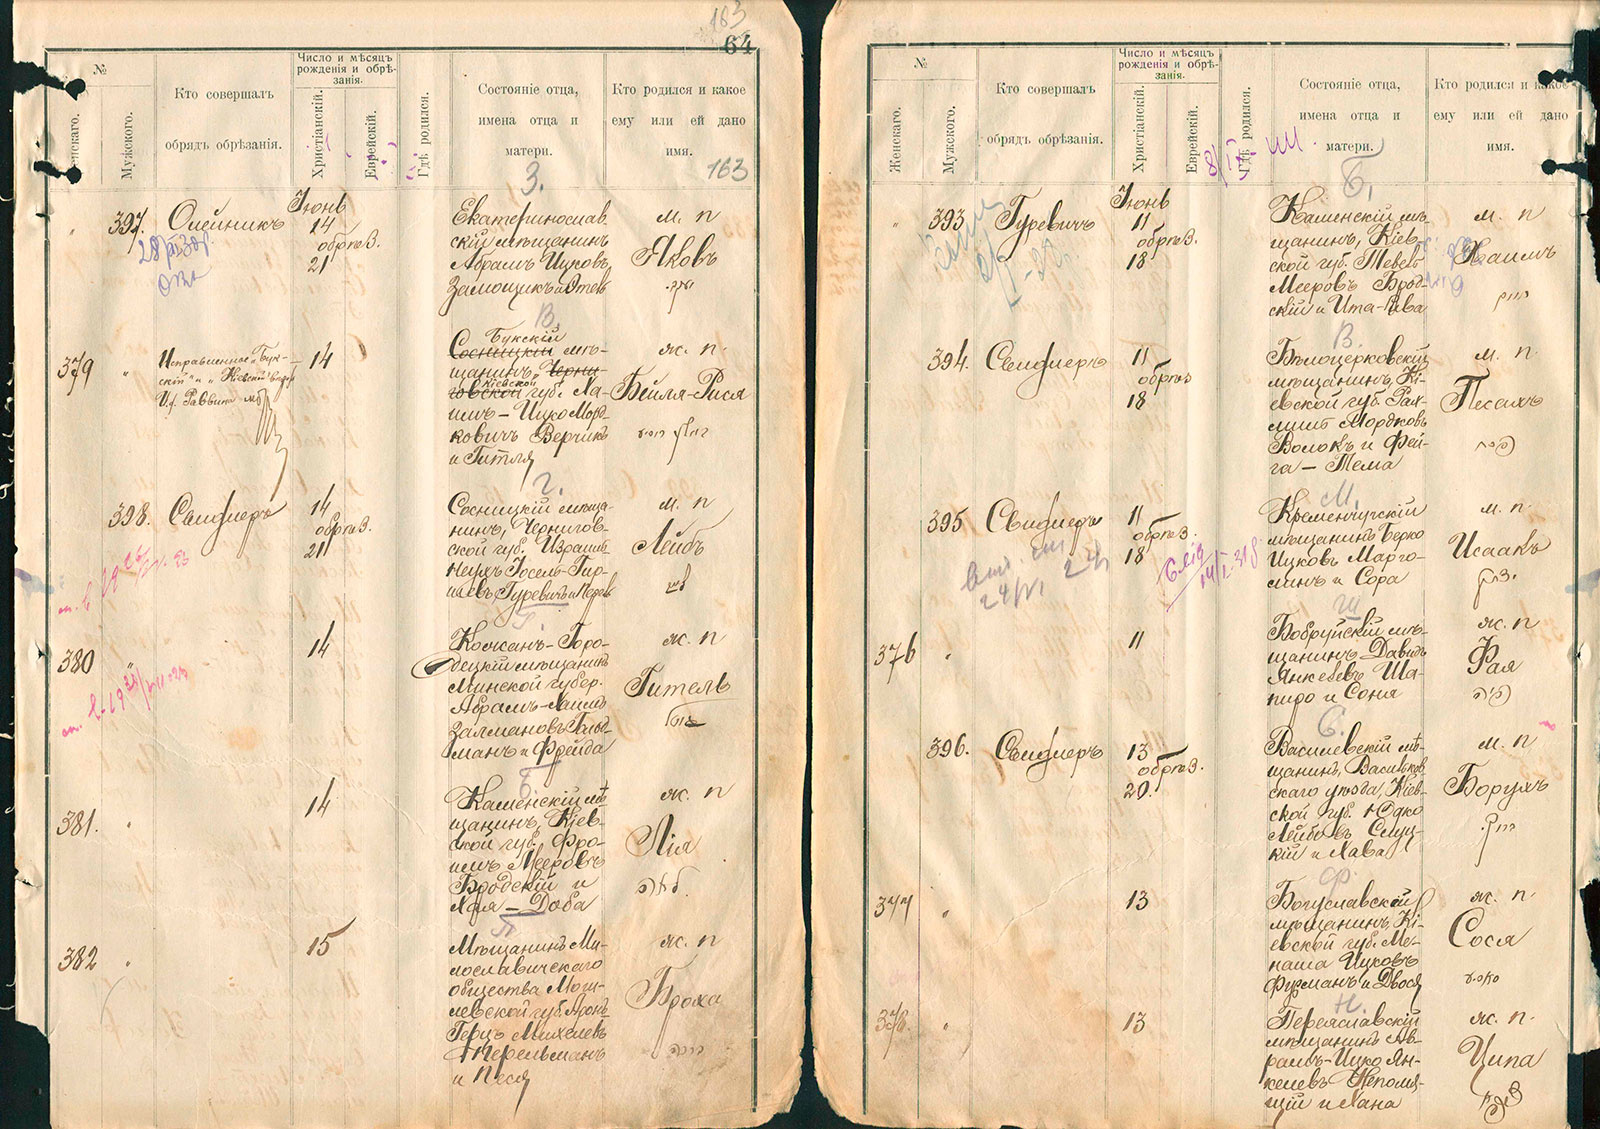 163
64
№
Женскаго.
Мужского.
Кто совершалъ
обрядъ обрѣзанія.
Число и мѣсяцъ
рожденія и обрѣ-
занія.
Христіанскій.
Еврейскій.
Гдѣ родился.
Состояніе отца,
имена отца и
матери.
Кто родился и какое
ему или ей дано
имя.
163
З.
"
397.
Олейникъ
Іюнь
14
обрѣз.
21
Екатеринослав-
скій мѣщанинъ
Абрамъ Ицковъ
Замощикъ и Этель
м. п
Яковъ
В.
379
"
Исправленное „Бук-
скій" и „Кіевской" вѣрно
И.д. Раввина
14
Букскій
Сосницкій мѣ-
щанинъ, Черни-
Кіевской
говской губ. Ха-
имъ-Ицко Морд-
ковичъ Верникъ
и Гитля
ж. п.
Бейля-Рися
Г.
398.
Свидлеръ
14
обрѣз.
21
Сосницкій мѣща-
нинъ, Чернигов-
ской губ. Израиль
Неухъ Іосель-Гир-
шевъ Гуревичъ и
м. п
Лейбъ
Г.
380
"
14
Кожан-Горо-
децкій мѣщанинъ
Минской губер.
Абрамъ-Хаимъ
Залмановъ Гольд-
манъ и Фрейда
ж. п
Гитель
Б
381.
"
14
Каменскій мѣ-
щанинъ, Кіев-
ской губ. Фро-
имъ Мееровъ
Бродскій и
Хая-Доба
ж. п
Лія
П
382
"
15
Мѣщанинъ Ми-
лославичскаго
общества Моги-
левской губ. Аронъ-
Герцъ Михелевъ
Перельманъ
и Песя
ж. п
Броха
№
Женскаго.
Мужского.
Кто совершалъ
обрядъ обрѣзанія.
Число и мѣсяцъ
рожденія и обрѣ-
занія.
Христіанскій.
Еврейскій.
Гдѣ родился.
Состояніе отца,
имена отца и
матери.
Кто родился и какое
ему или ей дано
имя.
Б,
"
393.
Гуревичъ
Іюнь
11
обрѣз.
18
Каменскій мѣ-
щанинъ, Кіев-
ской губ. Тевель
Мееровъ Брод-
скій и Ита-Рива
м. п
Хаимъ
В.
394.
Свидлеръ
11
обрѣз
18
Бѣлоцерковскій
мѣщанинъ, Кі-
евской губ. Рах-
миль Мордковъ
Волокъ и Фей-
га-Тема
м. п
Песахъ
М,
395
Свидлеръ
11
обрѣз.
18
Кременчугскій
мѣщанинъ Берко
Ицковъ Марго-
линъ и Сора
м. п
Исаакъ
Ш
376
"
11
Бобруйскій мѣ-
щанинъ Давидъ
Янкелевъ Ша-
пиро и Соня
ж. п
Фая
С.
396.
Свидлеръ
13
обрѣз.
20.
Василевскій мѣ-
щанинъ, Васильков-
скаго уѣзда, Кіев-
ской губ. Юдко
Лейбовъ Слуц-
кій и Хава
м. п
Борухъ
Ф.
377
"
13
Богуславскій
мѣщанинъ, Кі-
евской губ. Ме-
наша Ицковъ
Фурманъ и Двося
ж. п.
Сося
Н.
378.
"
13
Переяславскій
мѣщанинъ Ав-
рамъ-Ицко Ян-
келевъ Непомня-
щій и Хана
ж. п.
Ципа